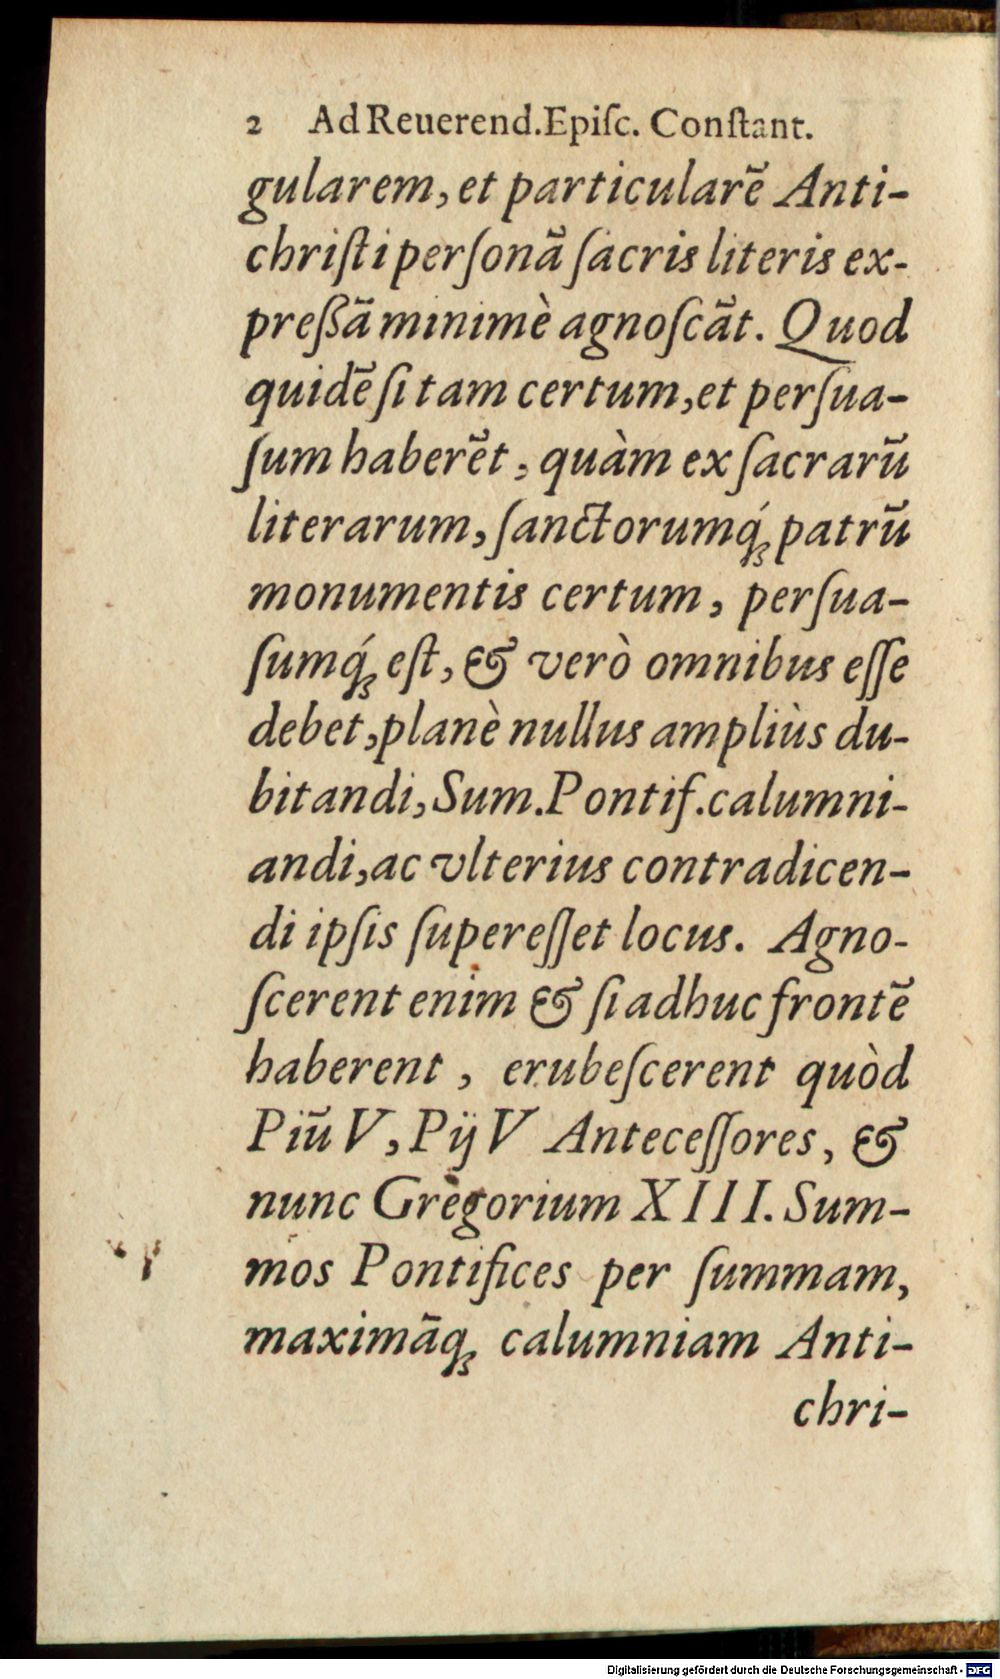 2 Ad Reuerend. Epiſc. Conſtant.
gularem, et particularē Anti-
chriſti perſonā ſacris literis ex-
preßā minimè agnoſcāt. Quod
quidē ſi tam certum, et perſua-
ſum haberēt, quàm ex ſacrarū
literarum, ſanctorumq́; patrū
monumentis certum, perſua-
ſumq́; eſt, & verò omnibus eſſe
debet, planè nullus ampliùs du-
bitandi, Sum. Pontif. calumni-
andi, ac vlterius contradicen-
di ipſis ſupereſſet locus. Agno-
ſcerent enim & ſi adhuc frontē
haberent, erubeſcerent quòd
Piū V, Pij V Anteceſſores, &
nunc Gregorium XIII. Sum-
mos Pontifices per ſummam,
maximāq; calumniam Anti-
chri-
Digitalisierung gefördert durch die Deutsche Forschungsgemeinschaft - DFG